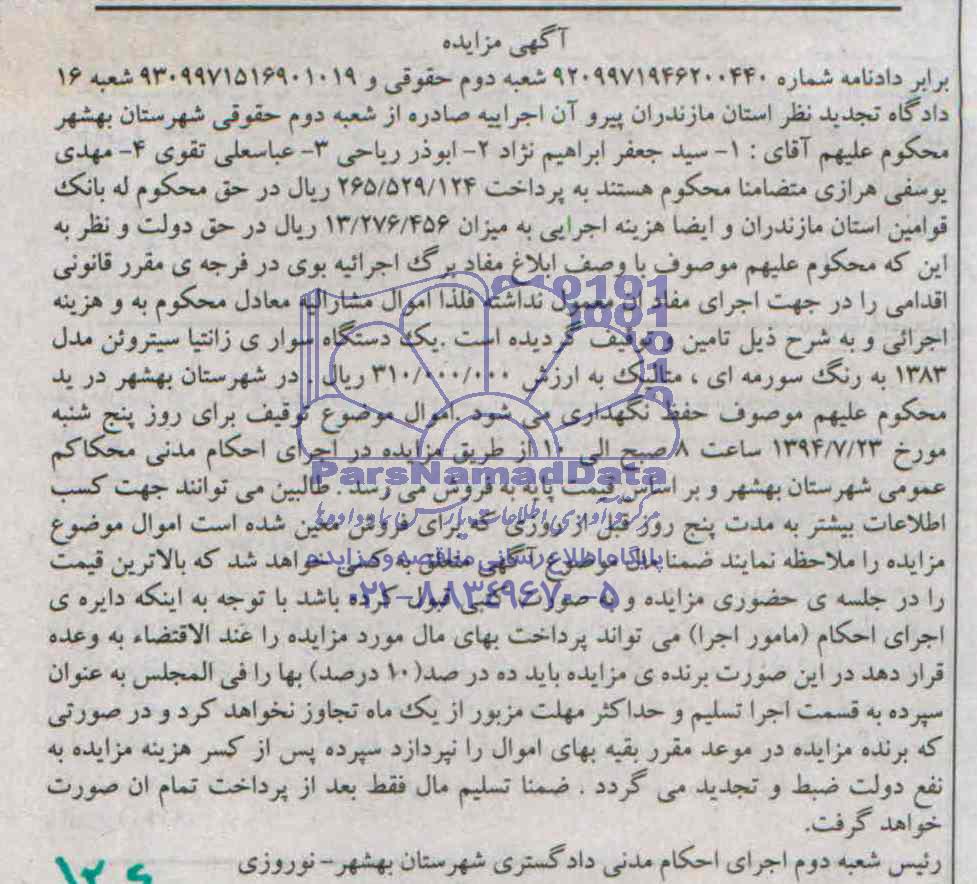 آگهی مزایده
برابر دادنامه شماره ۹۲۰۹۹۷۱۹۴۶۲۰۰۴۴۰ شعبه دوم حقوقی و ۹۳۰۹۹۷۱۵۱۶۹۰۱۰۱۹ شعبه ۱۶
دادگاه تجدید نظر استان مازندران پیرو آن اجراییه صادره از شعبه دوم حقوقی شهرستان بهشهر
محکوم علیهم آقای : ۱- سید جعفر ابراهیم نژاد ۲- ابوذر ریاحی ۳- عباسعلی تقوی ۴- مهدی
یوسفی هرازی متضامنا محکوم هستند به پرداخت ۲۶۵/۵۲۹/۱۲۴ ریال در حق محکوم له بانک
قوامین استان مازندران و ایضا هزینه اجرایی به میزان ۱۳/۲۷۶/۴۵۶ ریال در حق دولت و نظر به
این که محکوم علیهم موصوف با وصف ابلاغ مفاد برگ اجرائیه بوی در فرجه ی مقرر قانونی
اقدامی را در جهت اجرای مفاد آن معمول نداشته فلذا اموال مشارالیه معادل محکوم به و هزینه
اجرائی و به شرح ذیل تامین و توقیف گردیده است .یک دستگاه سوار ی زانتیا سیتروئن مدل
۱۳۸۳ به رنگ سورمه ای ، متالنک به ارزش ۳۱۰/۰۰۰/۰۰۰ ریال . در شهرستان بهشهر در ید
محکوم علیهم موصوف حفظ نگهداری می شود .اموال موضوع توقیف برای روز پنج شنبه
مورخ ۱۳۹۴/۷/۲۳ ساعت ۸ صبح الی ۱۰ از طریق مزایده در اجرای احکام مدنی محکاکم
ParsNamadData
عمومی شهرستان بهشهر و بر اساس قیمت پایه به فروش می رسد . طالبین می توانند جهت کسب
اطلاعات بیشتر به مدت پنج روز قبل از روزی که برای فروش معین شده است اموال موضوع
مزایده را ملاحظه نمایند ضمنا مال موضوع آگهی متعلق به کسی خواهد شد که بالاترین قیمت
پایگاه اطلاع رسانی مناقصه و مزایده
را در جلسه ی حضوری مزایده و در صورت کتبی قبول کرده باشد با توجه به اینکه دایره ی
۰۲۱-۸۸۳۴۹۶۷۰-۵
اجرای احکام (مامور اجرا) می تواند پرداخت بهای مال مورد مزایده را عند الاقتضاء به وعده
قرار دهد در این صورت برنده ی مزایده باید ده در صد(۱۰ درصد) بها را فی المجلس به عنوان
سپرده به قسمت اجرا تسلیم و حداکثر مهلت مزبور از یک ماه تجاوز نخواهد کرد و در صورتی
که برنده مزایده در موعد مقرر بقیه بهای اموال را نپردازد سپرده پس از کسر هزینه مزایده به
نفع دولت ضبط و تجدید می گردد . ضمنا تسلیم مال فقط بعد از پرداخت تمام ان صورت
خواهد گرفت.
رئیس شعبه دوم اجرای احکام مدنی دادگستری شهرستان بهشهر- نوروزی